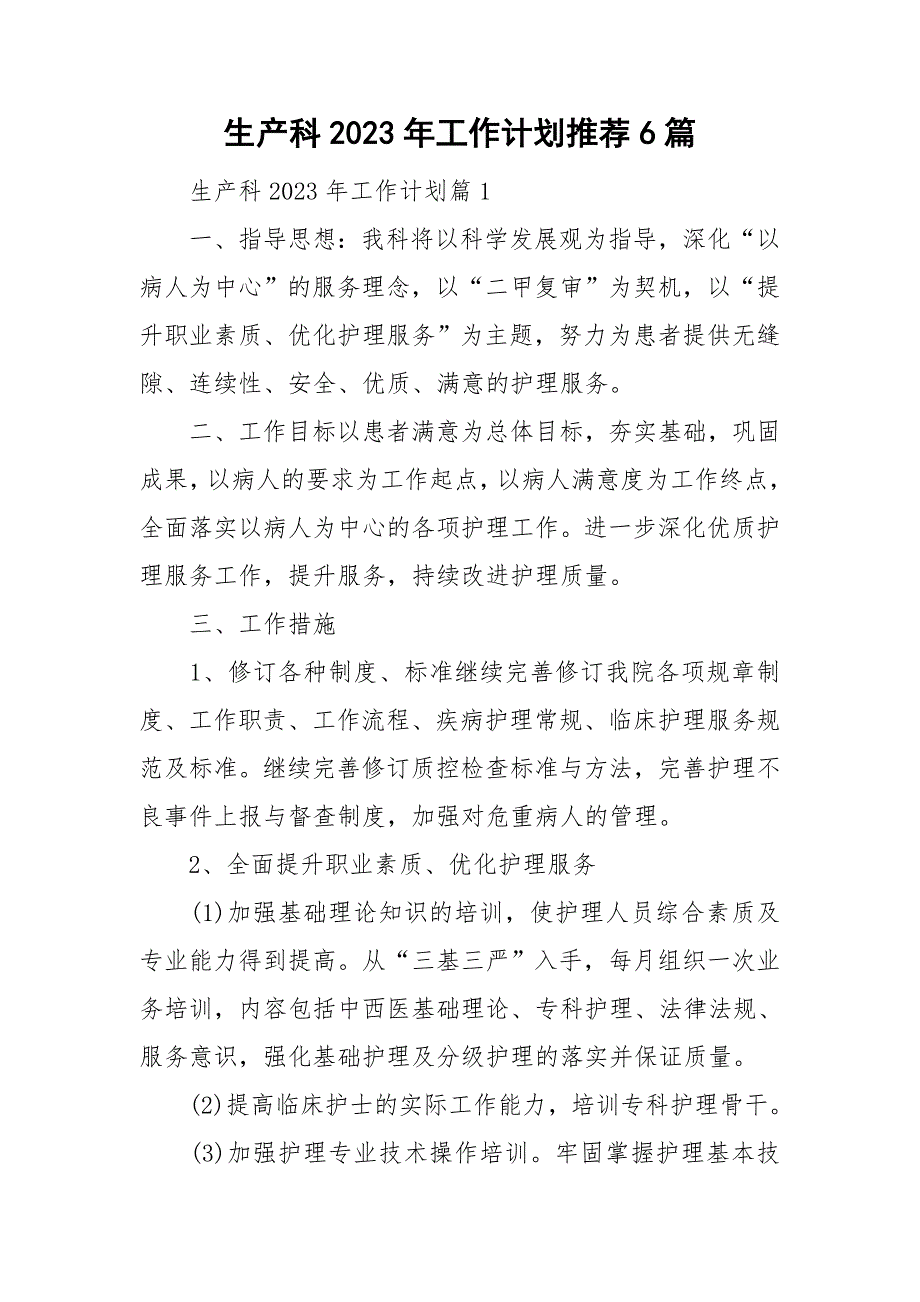 生产科2023年工作计划推荐6篇
生产科2023年工作计划篇1
一、指导思想：我科将以科学发展观为指导，深化“以
病人为中心”的服务理念，以“二甲复审”为契机，以“提
升职业素质、优化护理服务”为主题，努力为患者提供无缝
隙、连续性、安全、优质、满意的护理服务。
二、工作目标以患者满意为总体目标，夯实基础，巩固
成果，以病人的要求为工作起点，以病人满意度为工作终点，
全面落实以病人为中心的各项护理工作。进一步深化优质护
理服务工作，提升服务，持续改进护理质量。
三、工作措施
1、修订各种制度、标准继续完善修订我院各项规章制
度、工作职责、工作流程、疾病护理常规、临床护理服务规
范及标准。继续完善修订质控检查标准与方法，完善护理不
良事件上报与督查制度，加强对危重病人的管理。
2、全面提升职业素质、优化护理服务
(1)加强基础理论知识的培训，使护理人员综合素质及
专业能力得到提高。从“三基三严”入手，每月组织一次业
务培训，内容包括中西医基础理论、专科护理、法律法规、
服务意识，强化基础护理及分级护理的落实并保证质量。
(2)提高临床护士的实际工作能力，培训专科护理骨干。
(3)加强护理专业技术操作培训。牢固掌握护理基本技